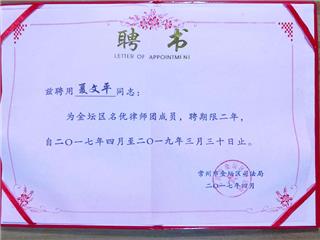 聘书
LETTER OF APPOINTMENT
兹聘用夏文平同志：
为金坛区名优律师团成员，聘期限二年，
自二〇一七年四月至二〇一九年三月三十日止。
常州市金坛区司法局
二〇一七年四月